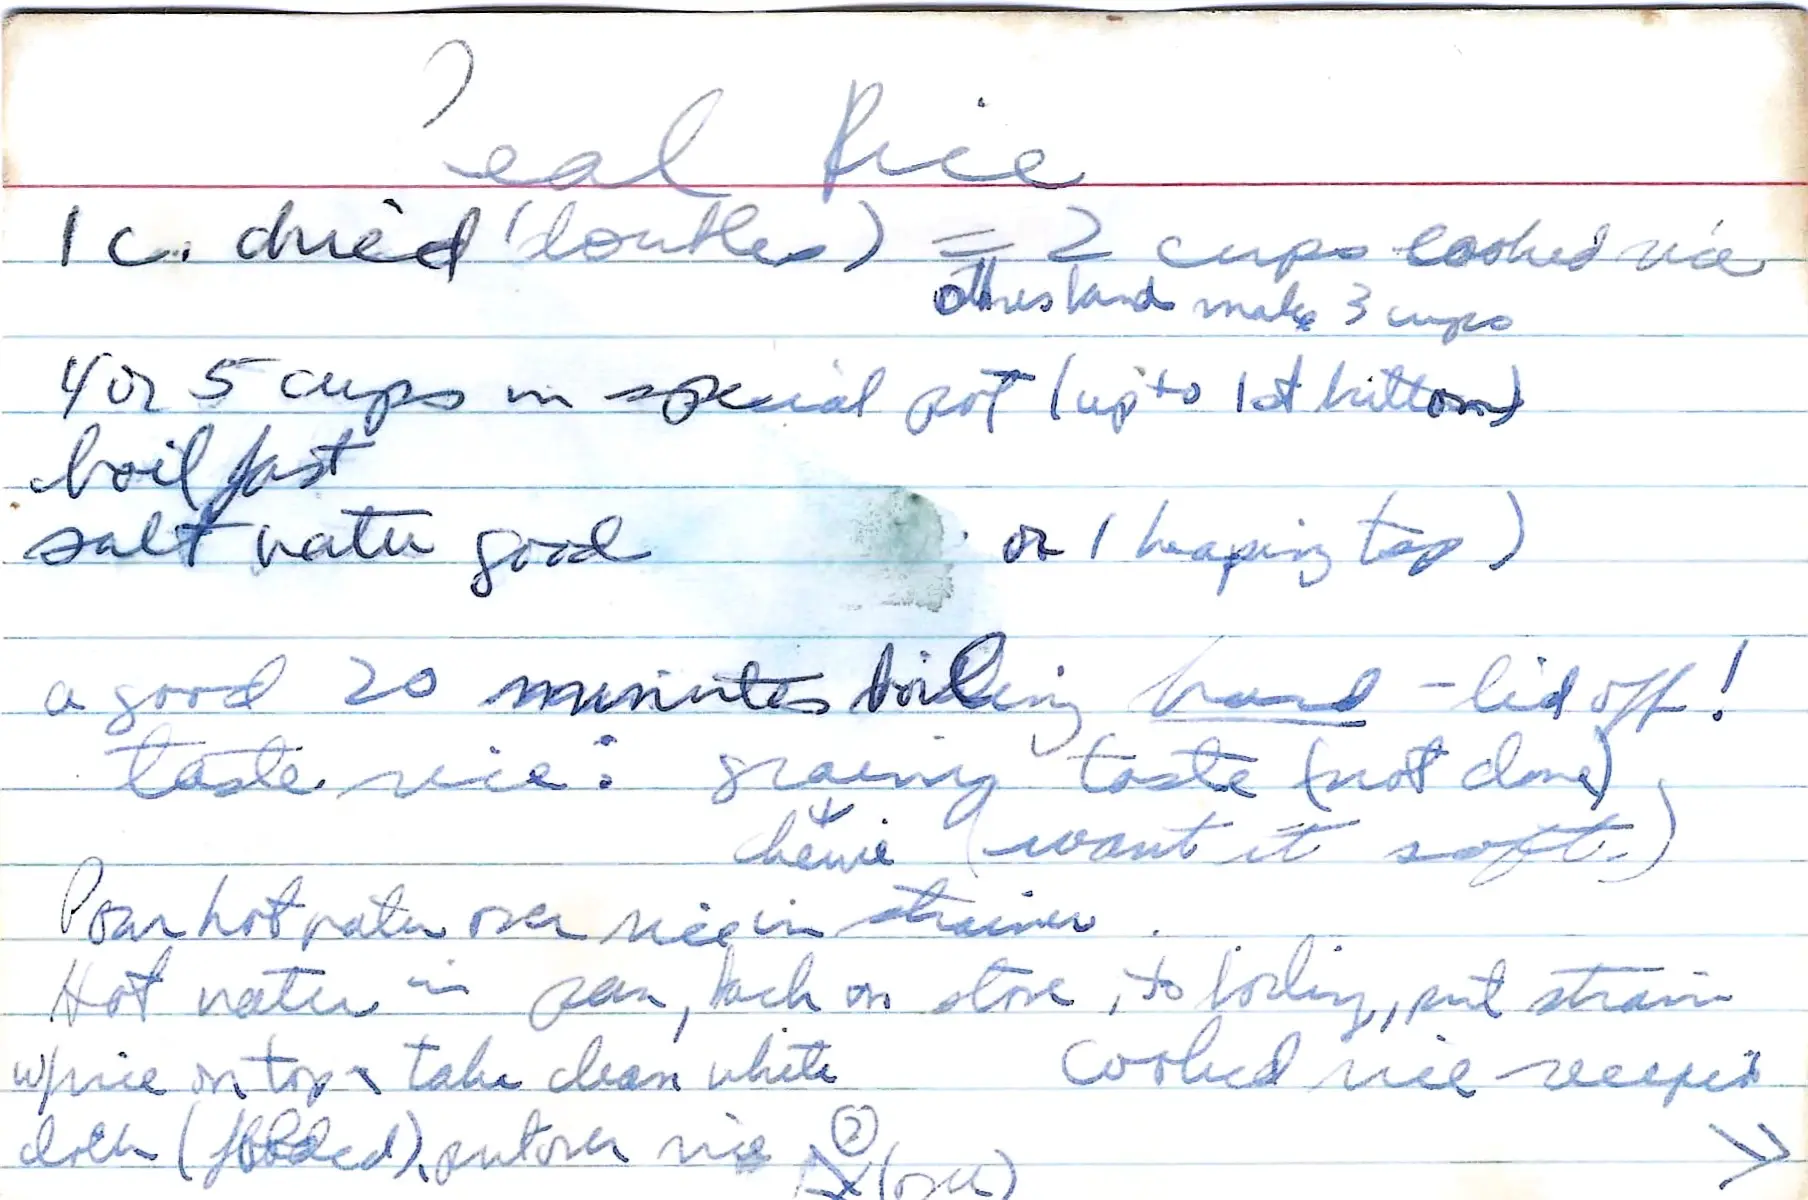 Real Rice
1 c. dried (doubles) = 2 cups cooked rice
other brands make 3 cups
4 or 5 cups in special pot (up to 1st bottom)
boil fast
salt water good or 1 heaping tsp)
a good 20 minutes boiling hard - lid off!
taste rice: grainy taste (not done)
chewie (want it soft.)
Pour hot water over rice in strainer.
Hot water in pan, back on stove, to boiling, put strain
w/rice on top, take clean white
cloth (folded), put over rice
cooked rice recipes
2 (over)